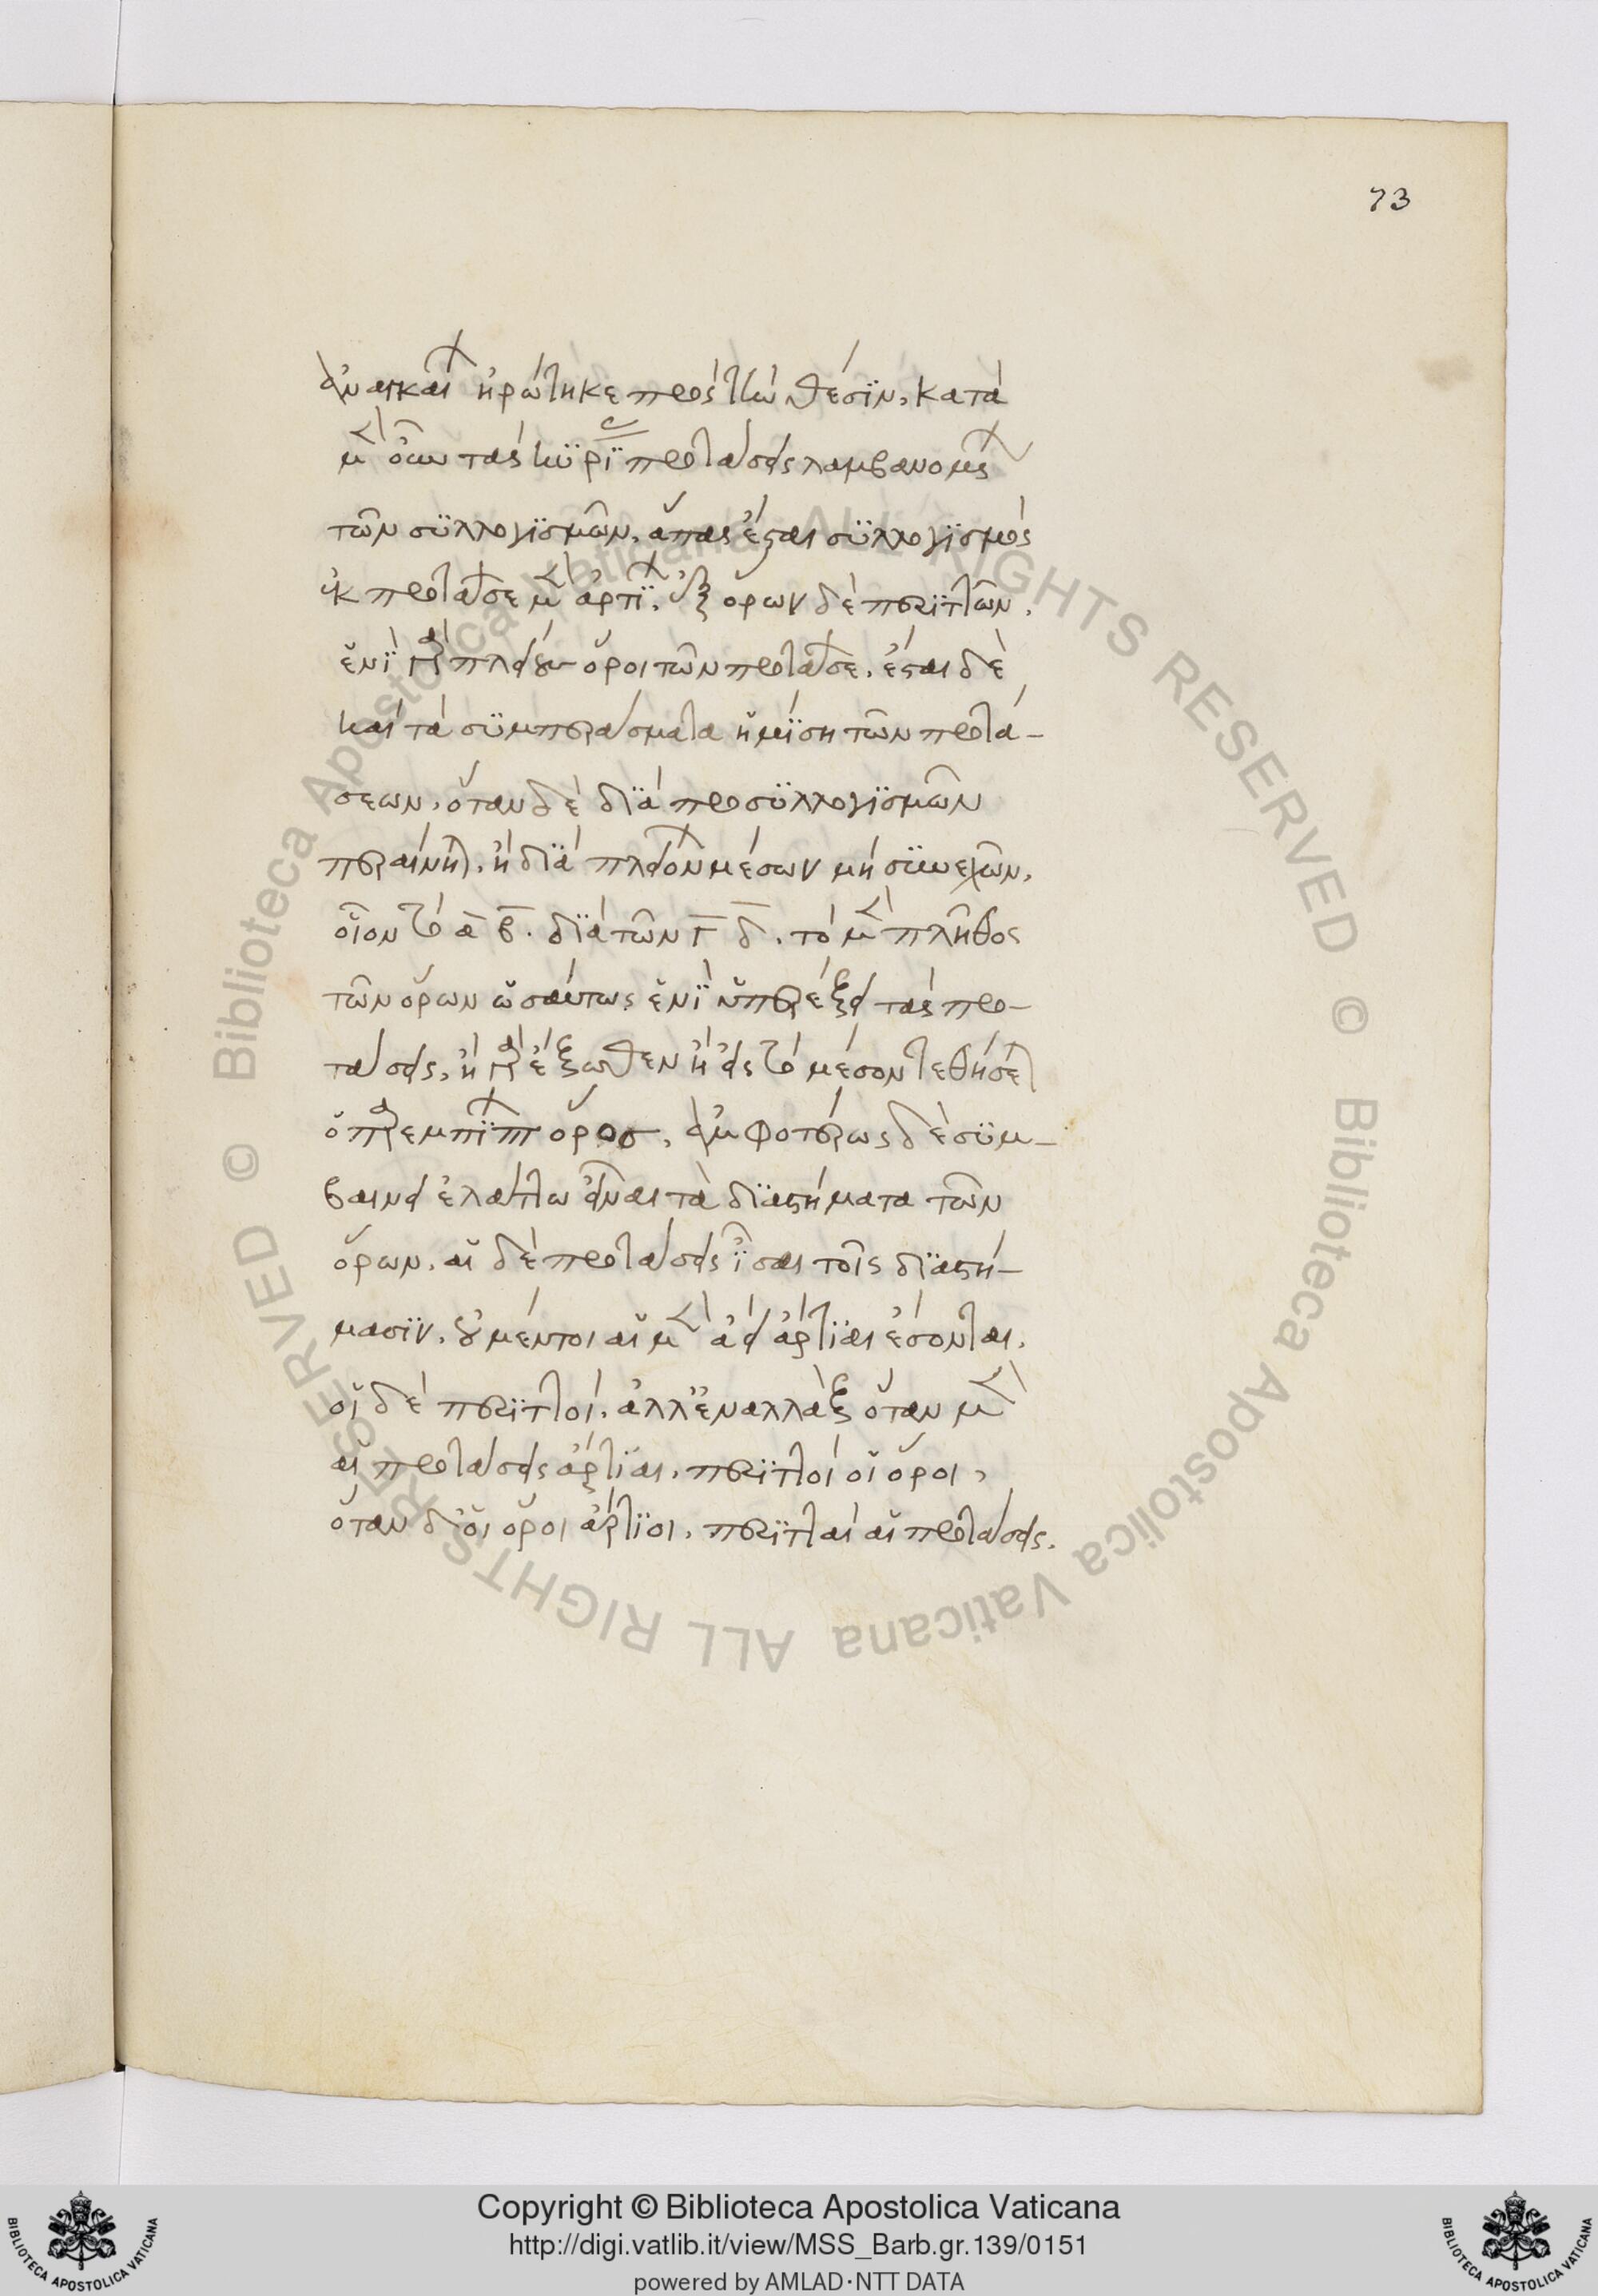 73
ἀναγκαῖ ἠρώτηκε πρὸς τὴν θέσϊν, κατὰ
μ̀ οὖν τὰς κϋρϊ προτάσεις λαμβανομς
τῶν σϋλλογϊσμῶν, ἅπας ἔσται σϋλλογϊσμὸς
ἐκ προτάσε μ̀ ἀρτϊ, ἐξ ὅρων δὲ περϊττῶν,
ἑνϊ γὰρ πλείους ὅροι τῶν προτάσε, ἔσται δὲ
καὶ τὰ σϋμπεράσματα ἡμϊση τῶν προτά-
σεων, ὅταν δὲ δϊὰ προσϋλλογϊσμῶν
περαίνητ, ἢ δϊὰ πλειόν μέσων μὴ σϋνεχῶν,
οἷον τὸ α β. δϊὰ τῶν γ δ. τὸ μ̀ πλῆθος
τῶν ὅρων ὡσαύτως ἑνϊ ὑπερέξει τὰς προ-
τάσεις, ἢ γὰρ ἔξωθεν ἢ εἰς τὸ μέσον τεθήσετ
ὁ παρεμπϊπτ ὅρος, ἀμφοτέρως δὲ σϋμ-
βαίνει ἐλάττω εἶναι τὰ δϊαστήματα τῶν
ὅρων, αἱ δὲ προτάσεις ἴσαι τοῖς δϊαστή-
μασϊν, οὐ μέντοι αἱ μ̀ ἀεὶ ἄρτϊαι ἔσονται,
οἱ δὲ περϊττοί, ἀλλ' ἐναλλὰξ ὅταν μ̀
αἱ προτάσεις ἄρτϊαι, περϊττοὶ οἱ ὅροι,
ὅταν δ' οἱ ὅροι ἄρτϊοι, περϊτταὶ αἱ προτάσεις.
Copyright © Biblioteca Apostolica Vaticana
http://digi.vatlib.it/view/MSS_Barb.gr.139/0151
powered by AMLAD·NTT DATA
BIBLIOTECA APOSTOLICA VATICANA
BIBLIOTECA APOSTOLICA VATICANA
© Biblioteca Apostolica Vaticana ALL RIGHTS RESERVED © Biblioteca Apostolica Vaticana ALL RIGHTS RESERVED